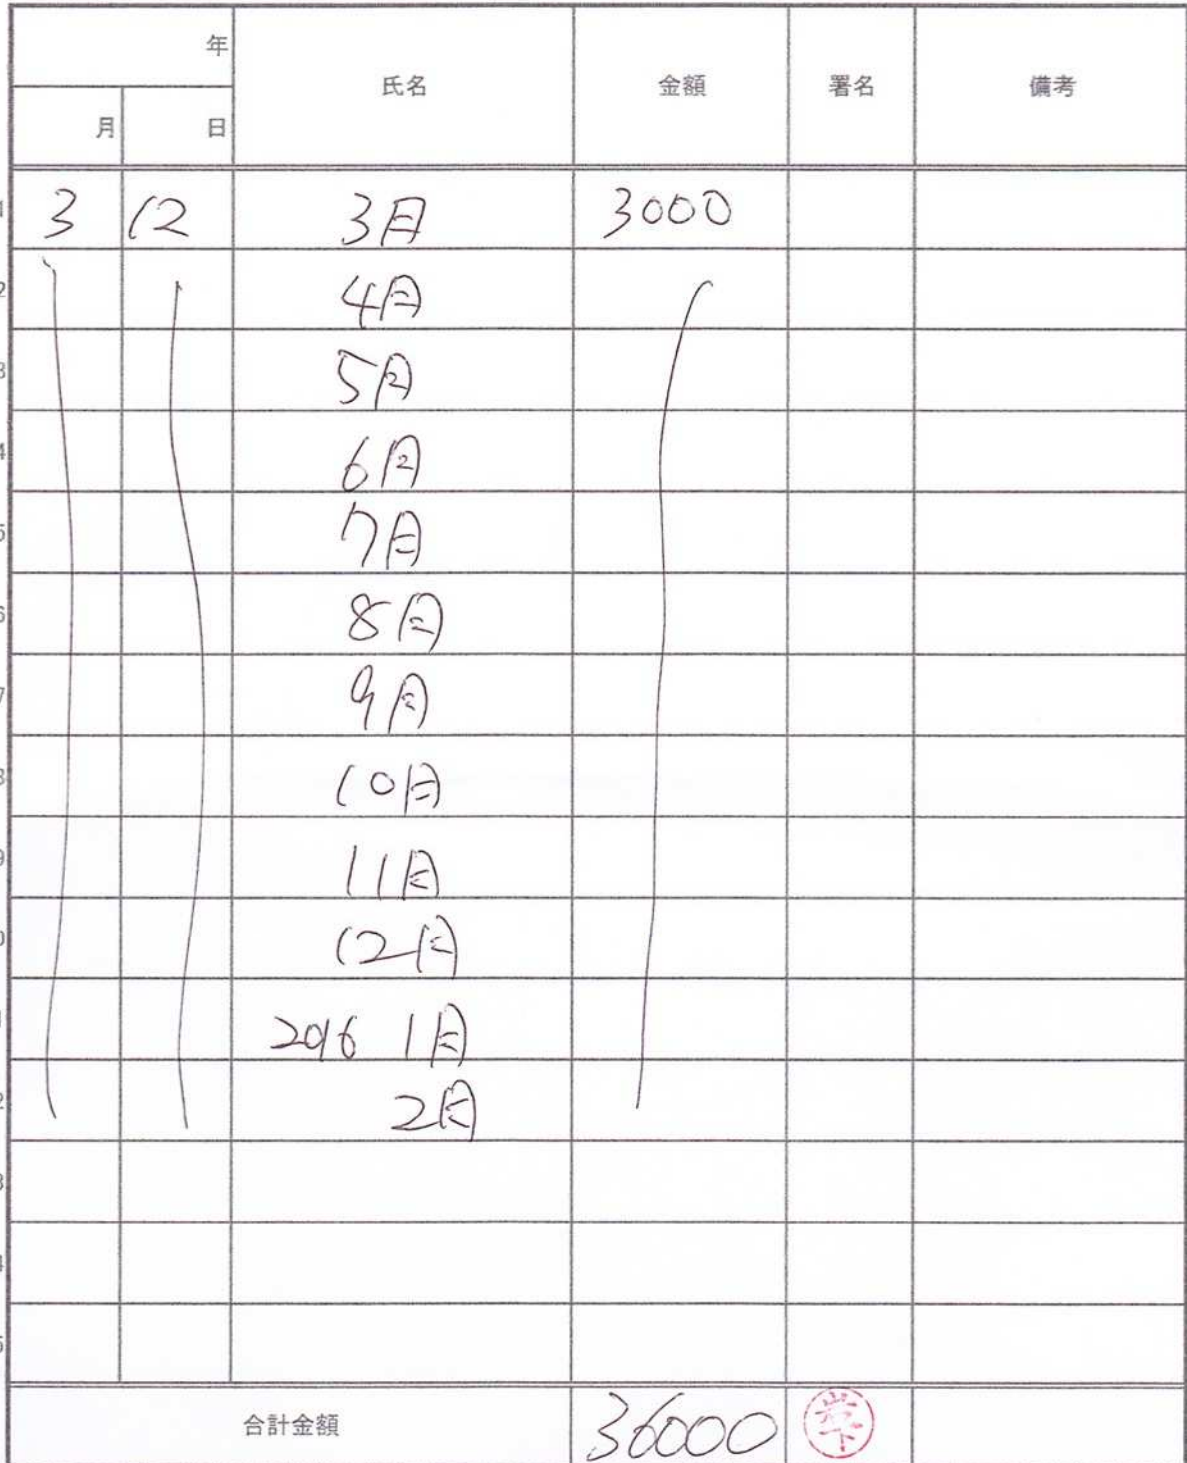 年
月 日 氏名 金額 署名 備考
3 12 3月 3000
4月
5月
6月
7月
8月
9月
10月
11月
12月
2016 1月
2月
合計金額 36000 岩下